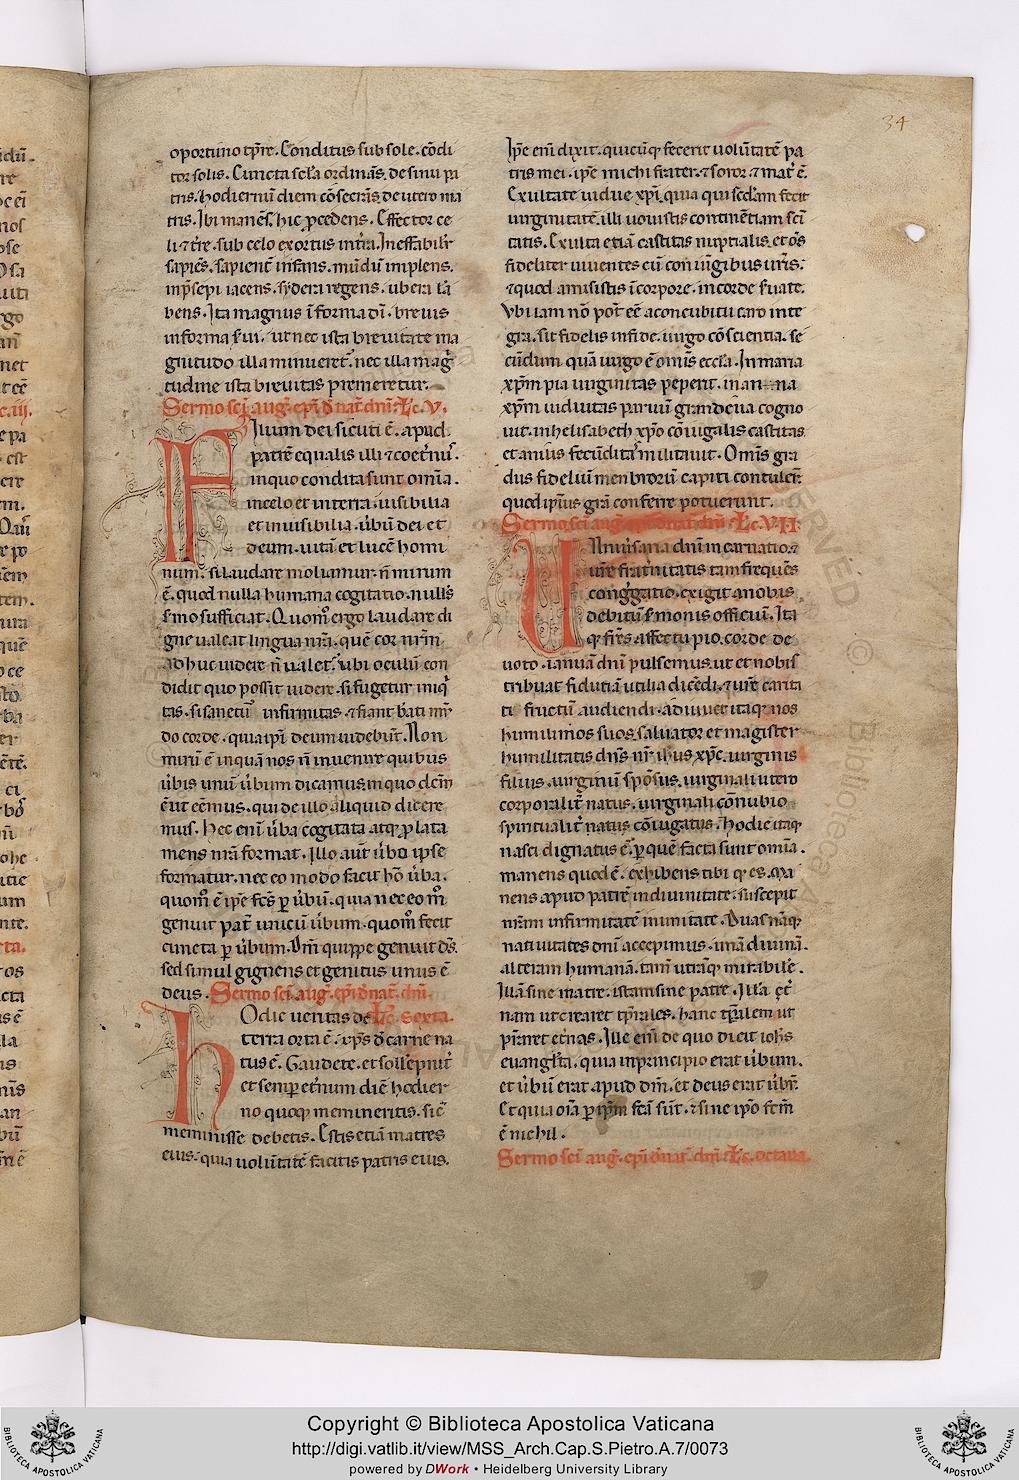 34
oportuno tp̄re. Conditus sub sole. cōdi
tor solis. Cuncta scl̄a ordinās. de sinu pa
tris. hodiernū diem cōsecrās. de utero ma
tris. Ibi manēs. hic procedens. Effector ce
li ⁊ t̄re. sub celo exortus in t̄ra. Ineffabilit̄
sapiēs. sapient̄ infans. mūdū implens.
in p̄sepi iacens. sydera regens. ubera lā
bens. Ita magnus ī forma dī. breuis
in forma s̄ui. ut nec ista breuitate ma
gnitudo illa minueret᷑. nec illa maḡ
tudine ista breuitas premeretur.
Sermo scī auḡ. ep̄i d̄ nat̄. dn̄i. Lc̄. V.
Filium dei sicuti ē. apud
patrē equalis illi ⁊ coet̄nus.
in quo condita sunt om̄ia.
in celo et in terra. uisibilia
et inuisibilia. u̇bū dei et
deum. uitā et lucē homi
num. si laudare moliamur. n̄ mirum
ē. quod nulla humana cogitatio. nullꝰ
s̄mo sufficiat. Quom̄ ergo laudare di
gne ualeat lingua nr̄a. quē cor nr̄m
adhuc uidere n̄ ualet. ubi oculū con
didit quo possit uidere. si fugetur iniq̇
tas. si sanetur infirmitas. ⁊ fiant b̄ati mū
do corde. quia ip̄i deum uidebūt. Non
mirū ē inquā nos n̄ inuenire quibus
u̇bis unū u̇bum dicamus in quo dc̄m
ē ut ēemus. qui de illo aliquid dicere
mus. hec enī u̇ba cogitata atq; plata
mens nr̄a format. Illo aut̄ u̇bo ipse
formatur. nec eo modo facit hō u̇ba.
quom̄ ē ip̄e fc̄s ꝑ u̇bū. quia nec eo m̄
genuit pat̄ unicū u̇bum. quom̄ fecit
cuncta ꝑ u̇bum. Dm̄ quippe genuit ds̄.
sed simul gignens et genitus unus ē
deus. Sermo scī auḡ. ep̄i d̄ nat̄. dn̄i.
Hodie ueritas de Lc̄. sexta.
terra orta ē. xp̄s d̄ carne na
tus ē. Gaudete. et sollēpnit̄
et semper et̄num diē hodier
no quoq; memineritis. sic̄
meminisse debetis. Estis etiā matres
eius. quia uolūtatē facitis patris eius.
Ip̄e enī dixit. quicūq; fecerit uolūtatē pa
tris mei. ip̄e michi frater. ⁊ soror. ⁊ mat̄ ē.
Exultate uidue xp̄i. quia qui scdam fecit
uirginitatē. illi uouistis continētiam scī
tatis. Exulta etiā castitas nuptialis. et oēs
fideliter uiuentes cū coniūgibus ur̄is.
⁊ quod amisistis ī corpore. in corde s̄uate.
Vbi iam nō pot̄ eē a concubitu caro inte
gra. sit fidelis in fide. uirgo cōscientia. se
cūdum quā uirgo ē om̄is eccl̄a. In maria
xp̄m pia uirginitas peperit. in an na
xp̄m uiduitas paruū grandeua cogno
uit. in helisabeth xp̄o cōiugalis castitas
et anilis fecūditas militauit. Om̄is gra
dus fideliū menbrorū capiti contuler̄
quod ipsius grā conferre potuerunt.
Sermo scī auḡ. ep̄i d̄ nat̄. dn̄i. Lc̄. VII.
Uniu̇saria dn̄i incarnatio. ⁊
ur̄e frat̄nitatis tam frequēs
cong̅gatio. exigit a nobis
debitū s̄monis officiū. Ita
q; fr̄es affectu pio. corde de
uoto. ianuā dn̄i pulsemus. ut et nobis
tribuat fidutiā utilia dicēdi. ⁊ ur̄e carita
ti fructū audiendi. adiuuet itaq; nos
humilimos suos. saluator et magister
humilitatis dn̄s nr̄ ih̄us xp̄c. uirginis
filius. uirginū spōsus. uirginali utero
corporalit̄ natus. uirginali cōnubio
spiritualit̄ natus cōiugatus. Hodie itaq;
nasci dignatus ē. ꝑ quē facta sunt om̄ia.
manens quod ē. exhibens tibi q; es. Ma
nens apud patrē in diuinitate. suscepit
nr̄am infirmitatē in unitate. Duas nāq;
natiuitates dn̄i accepimus. unā diuinā.
alteram humanā. tam̄ utrāq; mirabilē.
Illā sine matre. istam sine patre. Illa et̄
nam ut crearet tp̄rales. hanc tp̄alem ut
p̄staret et̄nas. Ille enī de quo dicit ioh̄s
euangl̄ta. quia in principio erat u̇bum.
et u̇bū erat apud dm̄. et deus erat u̇bū.
Et quia oīa ꝑ ip̄m fc̄a sūt. ⁊ sine ip̄o fc̄m
ē nichil.
Sermo scī auḡ. ep̄i d̄ nat̄. dn̄i. Lc̄. octaua.
Copyright © Biblioteca Apostolica Vaticana
http://digi.vatlib.it/view/MSS_Arch.Cap.S.Pietro.A.7/0073
powered by DWork • Heidelberg University Library
BIBLIOTECA APOSTOLICA VATICANA
BIBLIOTECA APOSTOLICA VATICANA